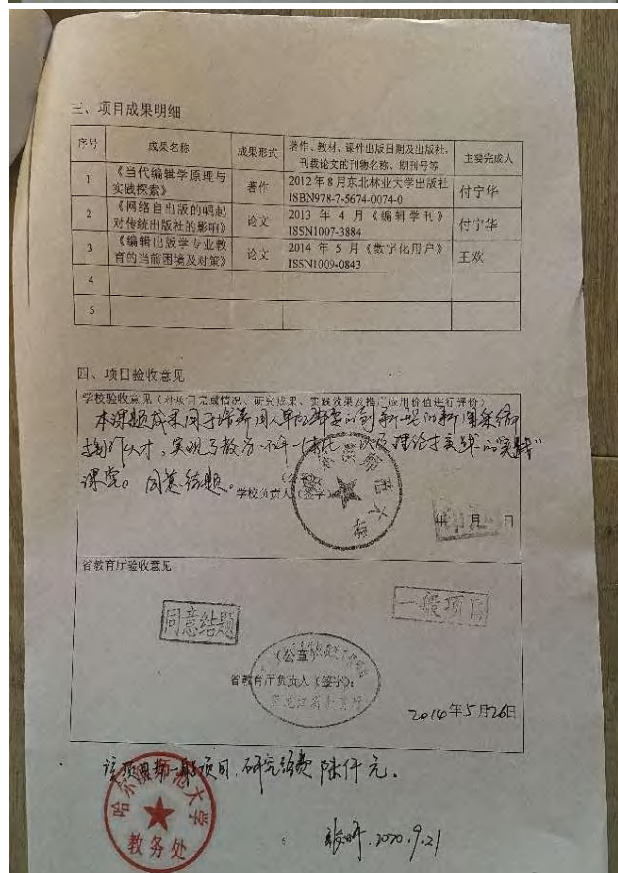 三、项目成果明细
序号 成果名称 成果形式 著作、教材、课件出版日期及出版社,刊载论文的刊物名称、期刊号等 主要完成人
1 《当代编辑学原理与实践探索》 著作 2012年8月东北林业大学出版社 ISBN978-7-5674-0074-0 付宁华
2 《网络自出版的崛起对传统出版社的影响》 论文 2013年4月《编辑学刊》 ISSN1007-3884 付宁华
3 《编辑出版学专业教育的当前困境及对策》 论文 2014年5月《数字化用户》 ISSN1009-0843 王欢
4
5
四、项目验收意见
学校验收意见(对项目完成情况、研究成果、实践效果及推广应用价值进行评价)
本课题成果用于培养用人单位
人才,实现了
课堂。同意结题。
学校负责人(签字)
年 月 日
省教育厅验收意见
同意结题
一般项目
(公章)
省教育厅负责人(签字):
2014年5月26日
该项目为一般项目,研究经费陆仟元。
哈尔滨师范大学
教务处
6
2020.9.21